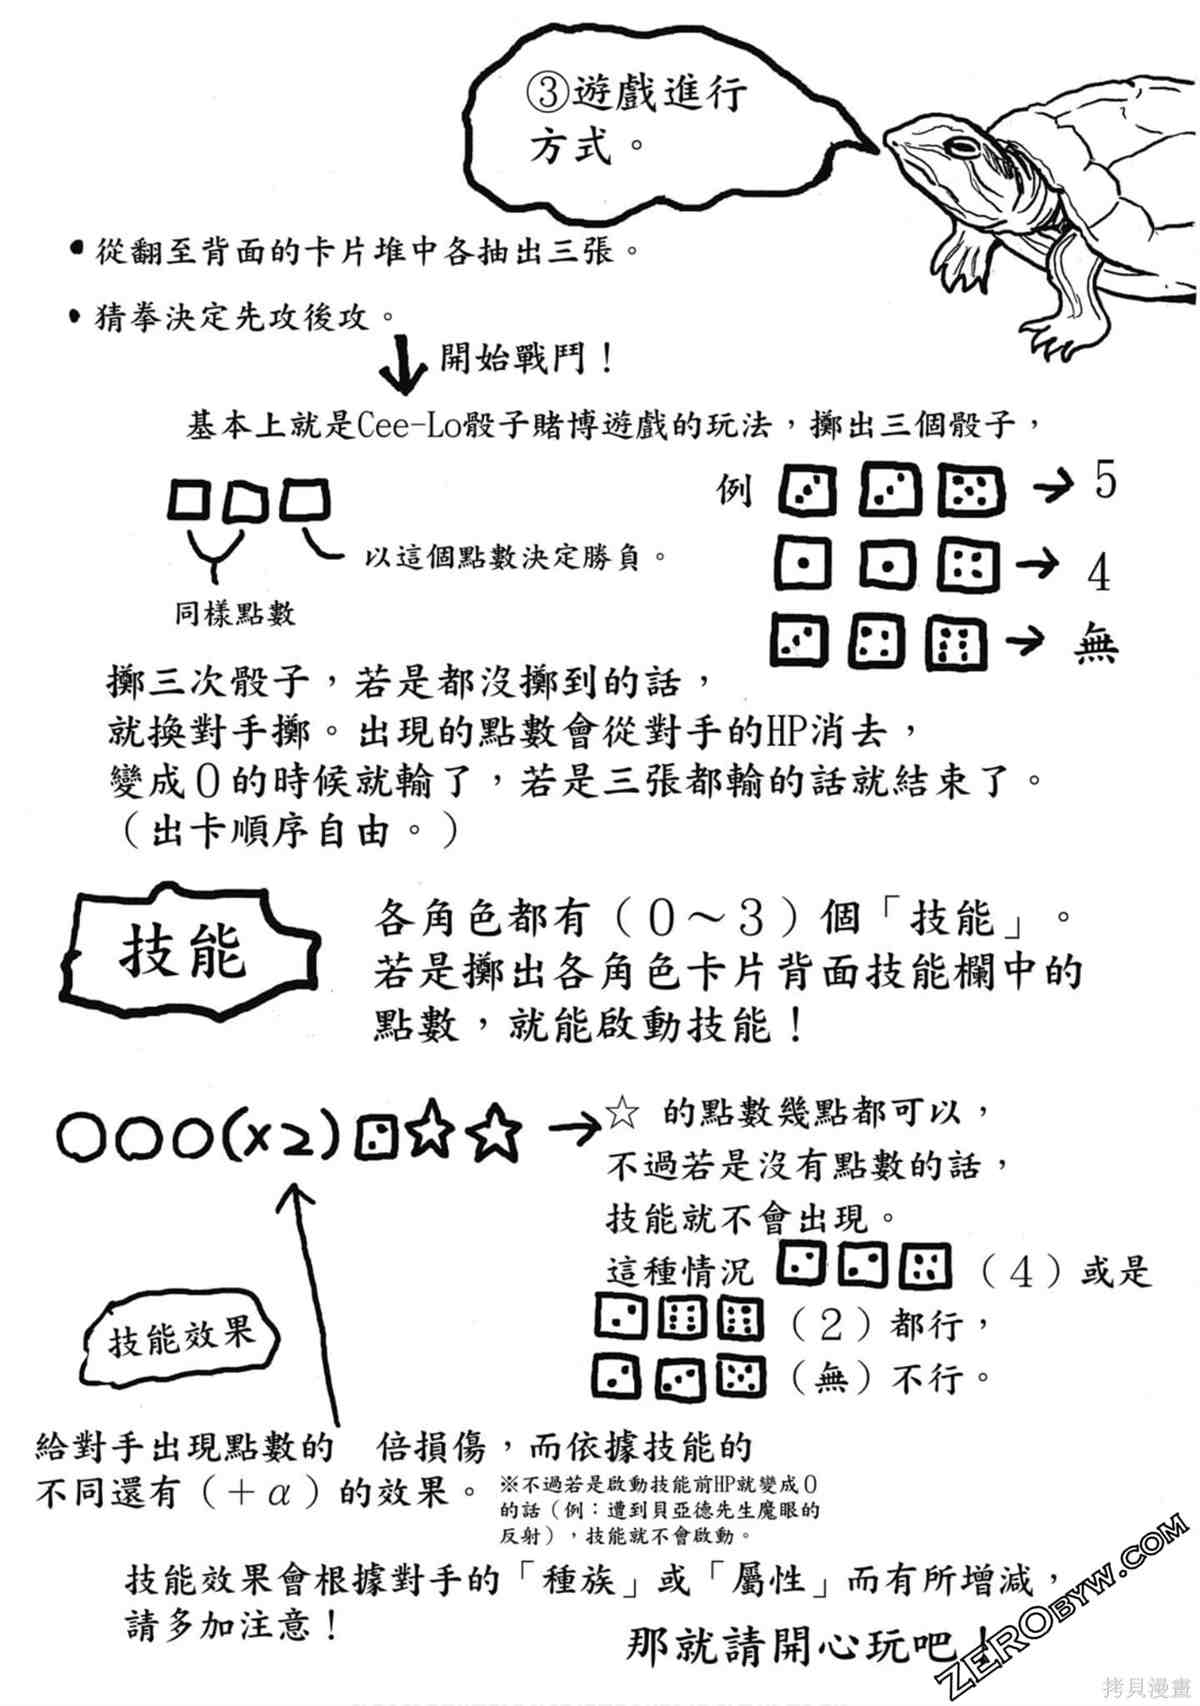 ③遊戲進行
方式。
•從翻至背面的卡片堆中各抽出三張。
•猜拳決定先攻後攻。
開始戰鬥！
基本上就是Cee-Lo骰子賭博遊戲的玩法，擲出三個骰子，
例 → 5
→ 4
→ 無
以這個點數決定勝負。
同樣點數
擲三次骰子，若是都沒擲到的話，
就換對手擲。出現的點數會從對手的HP消去，
變成０的時候就輸了，若是三張都輸的話就結束了。
（出卡順序自由。）
技能
各角色都有（０～３）個「技能」。
若是擲出各角色卡片背面技能欄中的
點數，就能啟動技能！
○○○(×2)☆☆→☆ 的點數幾點都可以，
不過若是沒有點數的話，
技能就不會出現。
這種情況 （４）或是
（２）都行，
（無）不行。
技能效果
給對手出現點數的 倍損傷，而依據技能的
不同還有（＋α）的效果。
※不過若是啟動技能前HP就變成０
的話（例：遭到貝亞德先生魔眼的
反射），技能就不會啟動。
技能效果會根據對手的「種族」或「屬性」而有所增減，
請多加注意！
那就請開心玩吧！
ZEROBYW.COM
拷貝漫畫